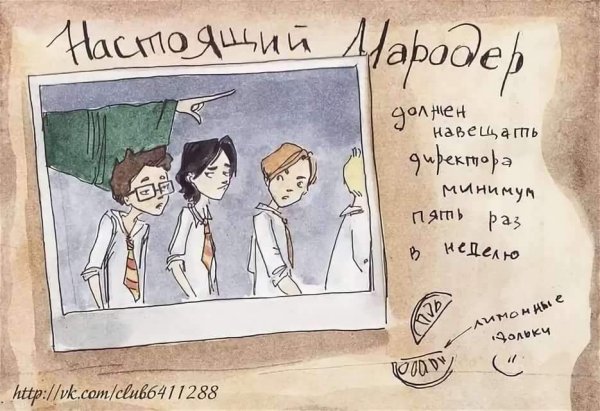 Настоящий Мародер
должен
навещать
директора
минимум
пять раз
в неделю
лимонные
дольки
http://vk.com/club6411288